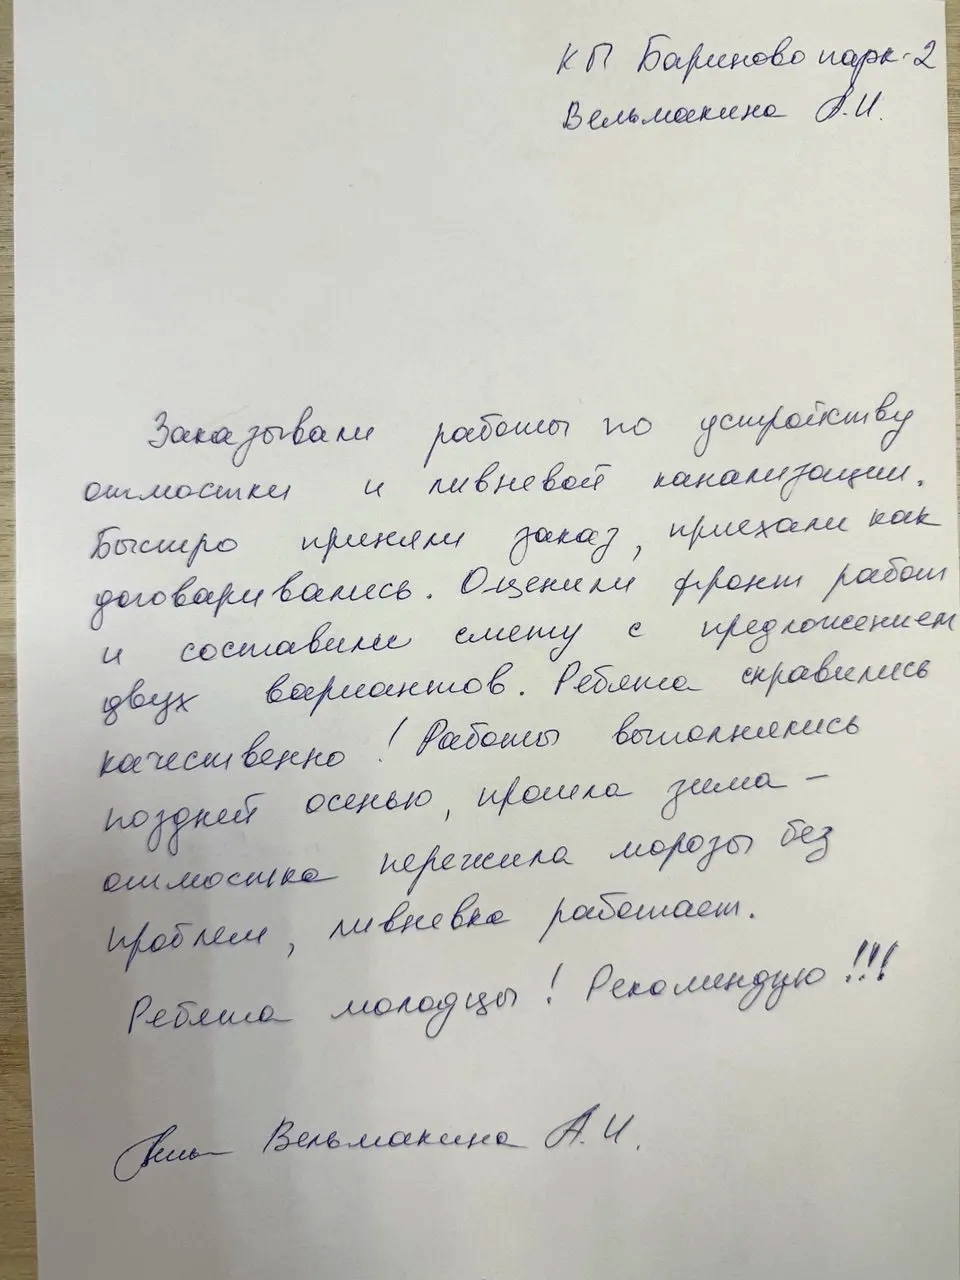 КП Бариново парк-2
Вельмакина А.И.
Заказывали работы по устройству
отмостки и ливневой канализации.
Быстро приняли заказ, приехали как
договаривались. Оценили фронт работ
и составили смету с предложением
двух вариантов. Ребята справились
качественно! Работы выполнялись
поздней осенью, прошла зима -
отмостка пережила морозы без
проблем, ливневка работает.
Ребята молодцы! Рекомендую!!!
Вельмакина А.И.